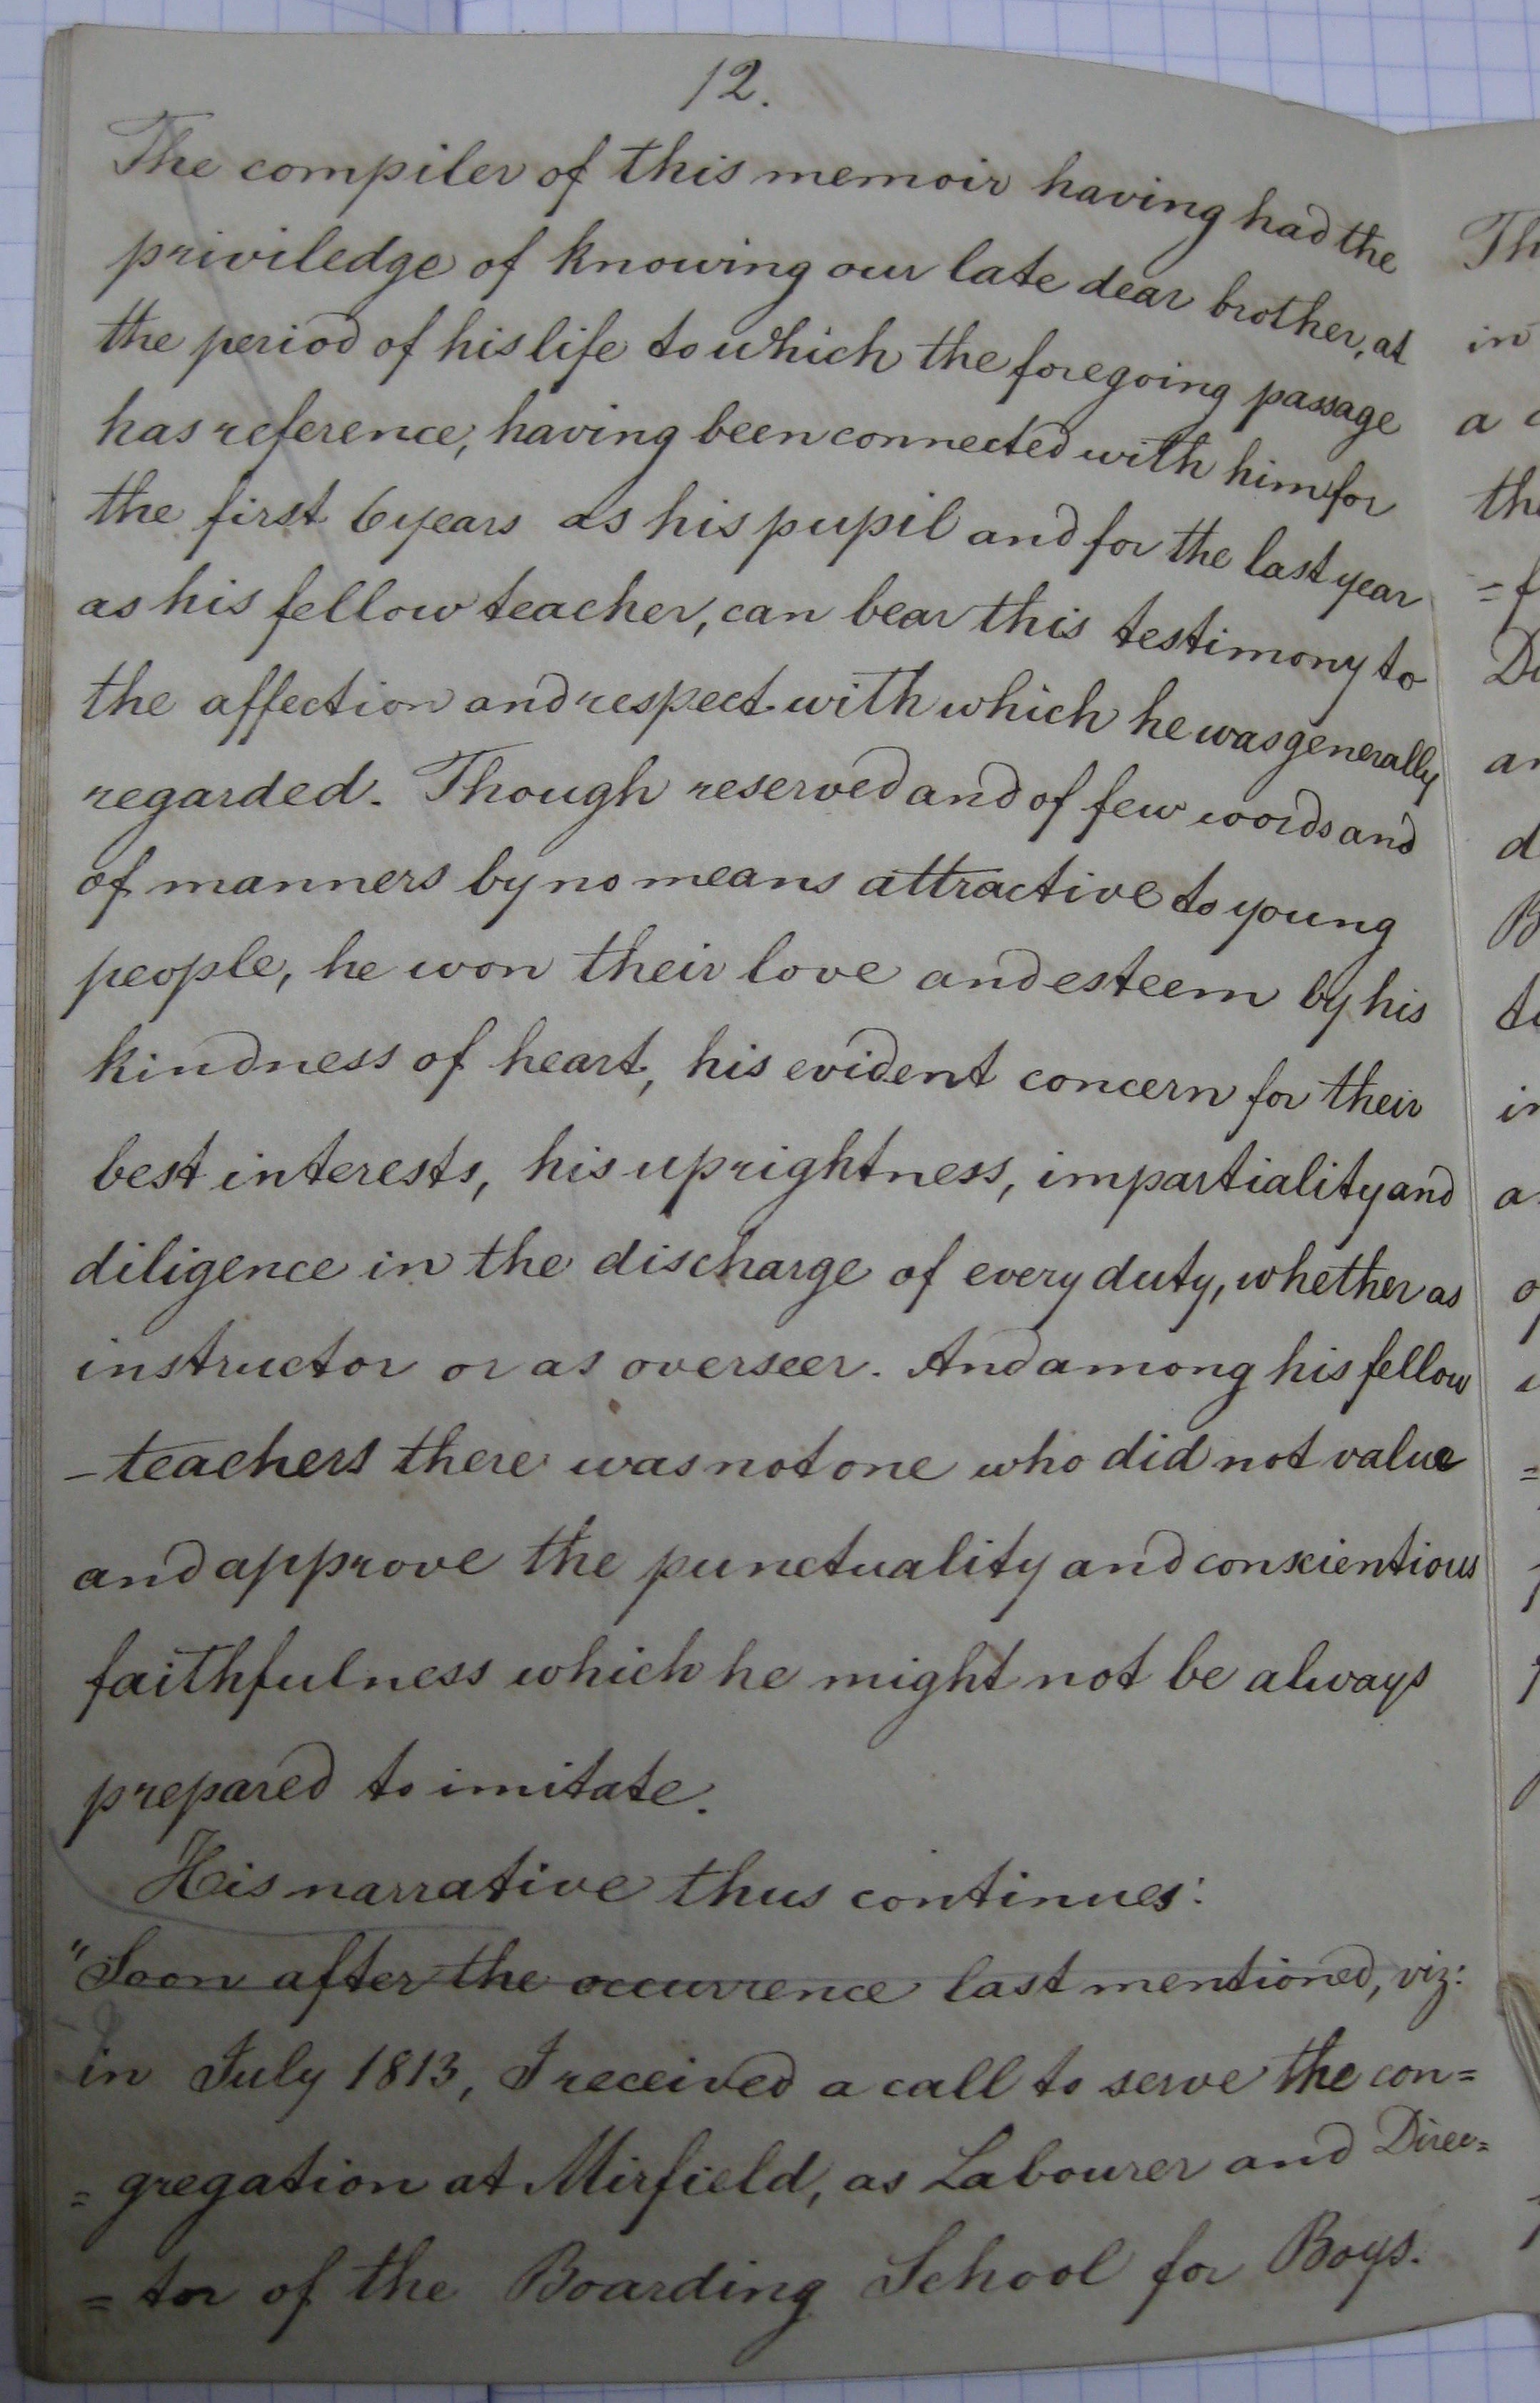 12.
The compiler of this memoir having had the
priviledge of knowing our late dear brother, at
the period of his life to which the foregoing passage
has reference, having been connected with him for
the first 6 years as his pupil and for the last year
as his fellow teacher, can bear this testimony to
the affection and respect with which he was generally
regarded. Though reserved and of few words and
of manners by no means attractive to young
people, he won their love and esteem by his
kindness of heart, his evident concern for their
best interests, his uprightness, impartiality and
diligence in the discharge of every duty, whether as
instructor or as overseer. And among his fellow
-teachers there was not one who did not value
and approve the punctuality and conscientious
faithfulness which he might not be always
prepared to imitate.
His narrative thus continues:
"Soon after the occurrence last mentioned, viz:
in July 1813, I received a call to serve the con=
=gregation at Mirfield, as Labourer and Direc=
=tor of the Boarding School for Boys.
Th
in
a
the
=f
D
an
d
B
to
in
a